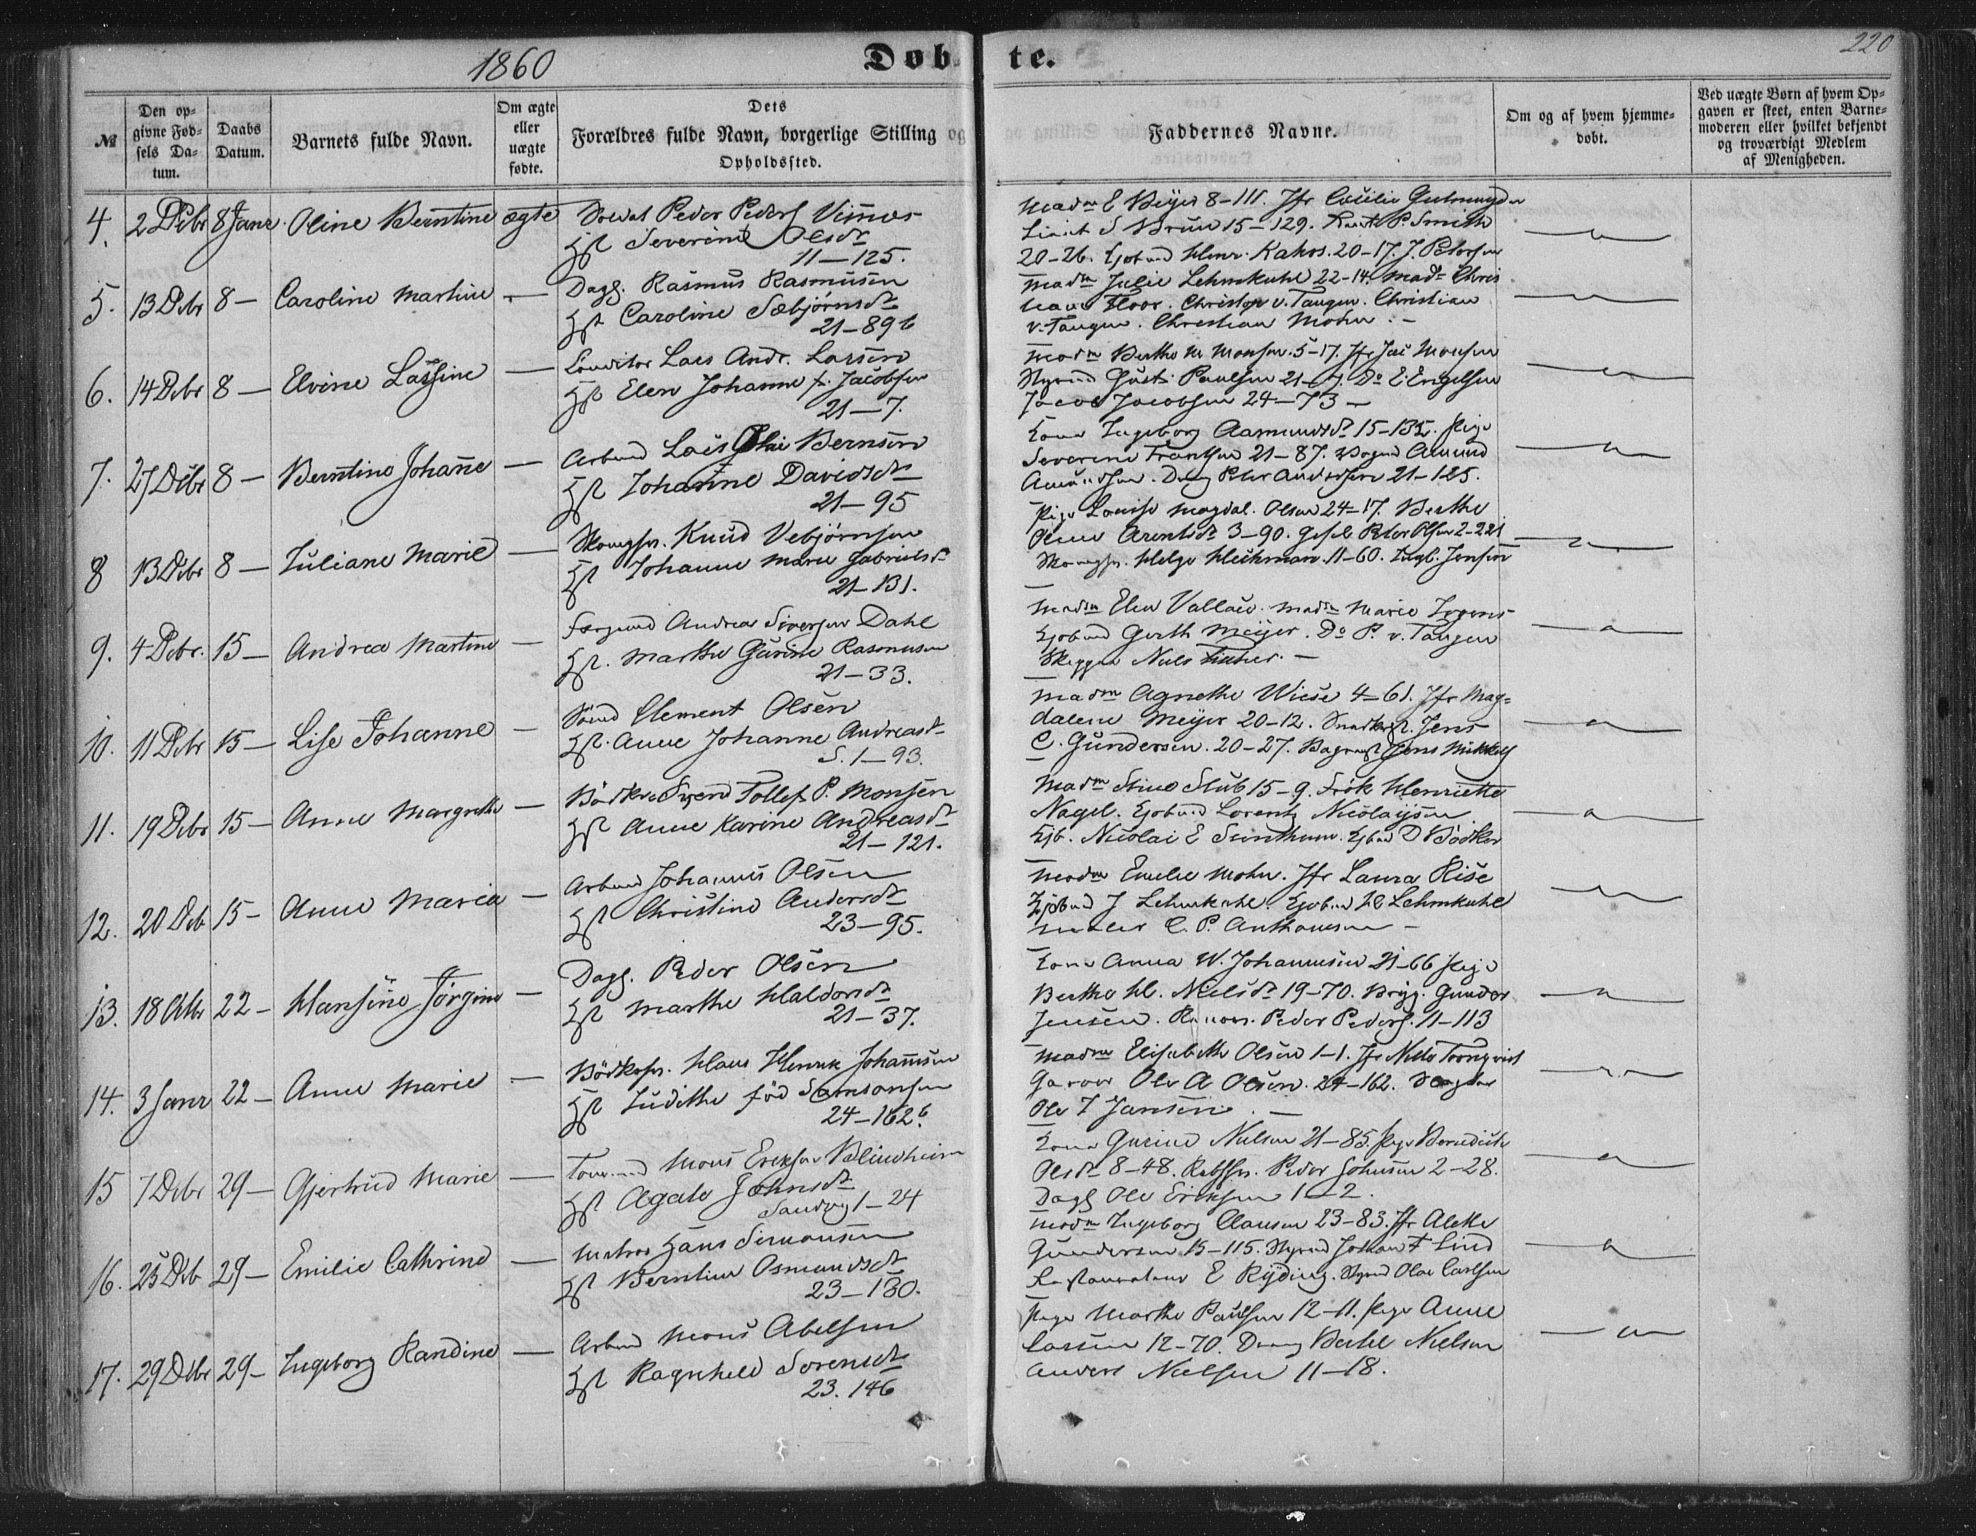 1860
Dob-
te.
220
№
Den op-
givne Fød-
sels Da-
tum.
Daabs
Datum.
Barnets fulde Navn.
Om ægte
eller
uægte
fødte.
Dets
Forældres fulde Navn, borgerlige Stilling og
Opholdssted.
Faddernes Navne.
Om og af hvem hjemme-
døbt.
Ved uægte Børn af hvem Op-
gaven er skeet, enten Barne-
moderen eller hvilket bekjendt
og troværdigt Medlem
af Menigheden.
4. 2 Dcbr 8 Janr. Oline Berntine ægte
Peder Peders
Hst Severine Olsdr
11–125.
Madm E Beyer 8–111. Jfr Cecilie
S Bruun 15–129. P. Smith
20–26. 20–17. J. Petersen
5. 13 Dcbr 8 – Caroline Martine –
Dagl. Rasmus Rasmussen
Hst Caroline Sæbjørnsdr
21–89 b
Madm Julie Lehmkuhl 22–14. Madm Chris
Floor. Christop v. Tangen. Christian
v. Tangen. Christian Mohn. –
6. 14 Dcbr 8 – Elvine Lassine –
Conditor Lars Andr. Larsen
Hst Elen Johanne f. Jacobsen
21–7.
Madm Berthe M Monsen. 5–17. Jfr Monsen
Styrmd Gust. Paulsen 21–7. Do E. Engelsen
Jacob Jacobsen 24–73 –
7. 27 Dcbr 8 – Berntine Johanne –
Arbmd Lars Olai Bernsen
Hst Johanne Davidsdr
21–95
Kone Ingeborg Aamundsdr 15–132. Pige
Severine Frantsen 21–87. Amund
Amundsen. Dreng Peter Andersen 21–125.
8 13 Dcbr 8 – Juliane Marie –
Knud Vebjørnsen
Hst Johanne Marie Gabrielsdr
21–131.
Pige Louise Magdal. Olsen 24–17. Berthe
Oline Arentsdr 3–90. Peter Olsen 2–221
Helge Heckman. 11–60. Jensen
9. 4 Dcbr. 15 – Andrea Martine –
Andreas Siversen Dahl
Hst. Marthe Gurine Rasmusen
21–33.
Madm Elen Vallace. Madm Marie
Kjøbmd Gerth Meyer. Do P. v. Tangen
Skipper Niels
10. 11 Dcbr 15 – Lise Johanne –
Sømd Clement Olsen
Hst. Anne Johanne Andreasdr
S. 1–93.
Madm Agnethe Wiese 4–61. Jfr Mag-
dalene Meyer 20–12. Jens
C. Gundersen. 20–27. Jens
11. 19 Dcbr 15 – Anne Margrethe –
Svend Tollef P. Monsen
Hst Anne Karine Andreasdr
21–121.
Madm Stine Stub 15–9. Frøk Henriette
Nagel. Kjøbmd Lorentz Nicolaysen.
Kjb. Nicolai E Sunthum. Kjbmd D Bødker
12. 20 Dcb 15 – Anne Maria –
Arbmd Johannes Olsen
Hst Christine Andersdr
23–95.
Madm Emelie Mohn. Jfr Laura Rise
Kjøbmd J Lehmkuhl. Kjøbmd Lehmkuhl
C. P. Anthonesen –
13. 18 22 – Hansine Jørgine –
Dagl. Peder Olsen
Hst Marthe Haldorsdr
21–37.
Kone Anna W. Johannesen 21–66 Pige
Berthe H. Nielsdr 19–70. Gunder
Jensen. Peder Peders. 11–113
14. 3 Janr 22 – Anne Marie –
Hans Henrik Johannesen
Hst Judithe fød Samsonsen
24–162 b
Madm Elisabeth Olsen 1–1. Jfr
Garver Ole A Olsen. 24–162.
Ole J Jansen. –
15 7 Dcbr 29 – Gjertrud Marie –
Mons Eriksen Blindheim
Hst Agate Johnsdr
Sandvig 1–24
Kone Gurine Nielsen 21–85. Pige
Olsdr 8–48. Peder Johnsen 2–28.
Dagl Ole Eriksen 1–2.
16. 25 Dcb 29 – Emilie Cathrine –
Matros Hans Simonsen
Hst Berntine Osmundsdr
23–130.
Madm Ingeborg Clausen 23–83. Jfr Alethe
Gundersen 15–115. Styrmd Johan F Lind
Restaurateur E Ryding. Styrmd Olai Carlsen
17. 29 Dcbr 29 – Ingeborg Randine –
Arbmd Mons Abelsen
Hst Ragnhild Sørensdr
23. 146
Pige Marthe Paulsen 12–11. Pige Anne
Larsen 12–70. Dreng Bertel Nielsen
Anders Nielsen 11–18.